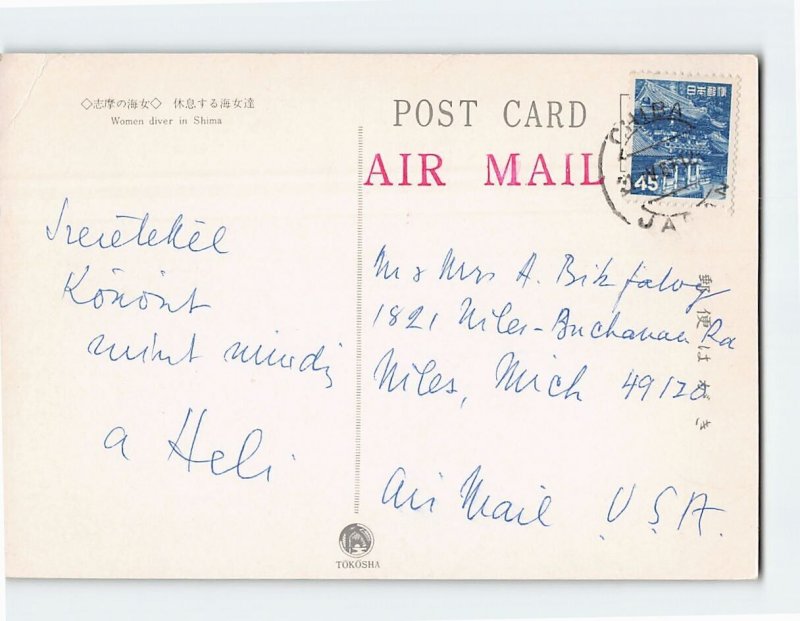 ◇志摩の海女◇ 休息する海女達
Women diver in Shima
Szeretettel
Köszönt
mint mindig
a Heli
TOKOSHA
POST CARD
AIR MAIL
日本郵便
45
CHIBA
JAPAN
郵便はがき
M & Mrs A. Bikfalvy
1821 Niles-Buchanan Rd
Niles, Mich 49120
Air Mail U.S.A.